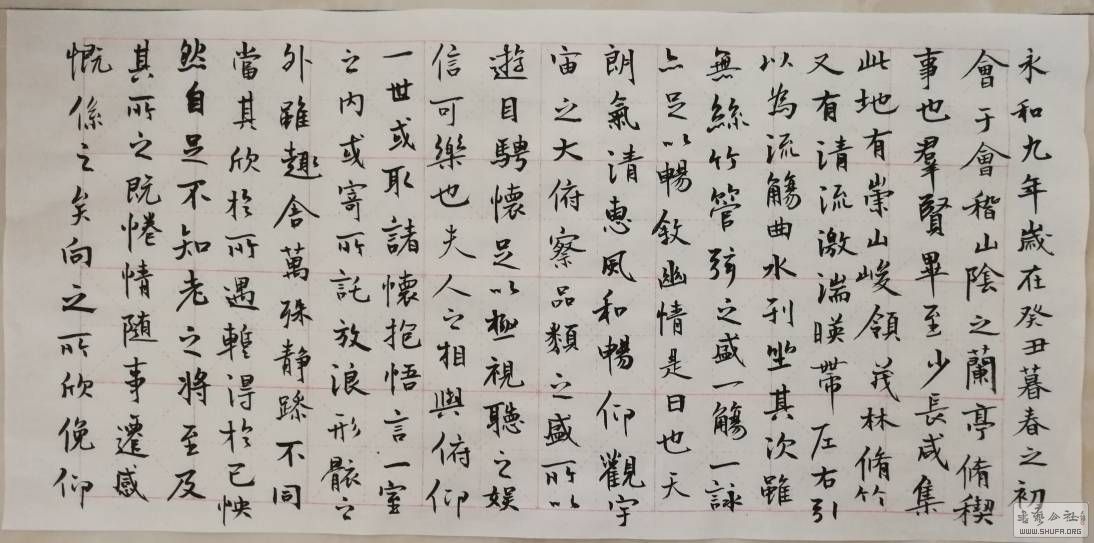 永和九年歲在癸丑暮春之初
會于會稽山陰之蘭亭脩稧
事也羣賢畢至少長咸集
此地有崇山峻領茂林脩竹
又有清流激湍暎帶左右引
以為流觴曲水列坐其次雖
無絲竹管弦之盛一觴一詠
亦足以暢敘幽情是日也天
朗氣清惠風和暢仰觀宇
宙之大俯察品類之盛所以
遊目騁懷足以極視聽之娛
信可樂也夫人之相與俯仰
一世或取諸懷抱悟言一室
之內或寄所託放浪形骸之
外雖趣舍萬殊靜躁不同
當其欣於所遇蹔得於己怏
然自足不知老之將至及
其所之既惓情隨事遷感
慨係之矣向之所欣俛仰
WWW.SHUFA.ORG